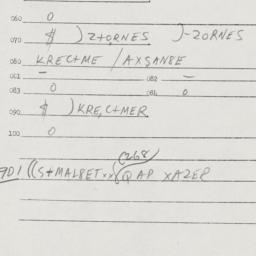 060 0
070 $ )Z+ORNES )-ZORNES
080 KREC+ME /AXSAN8E
081 - 082 -
083 0 084 0
090 $ )KREC+MER
100 0
(268)
9D1 ((S+MAL8ET xx(QAP XAZER